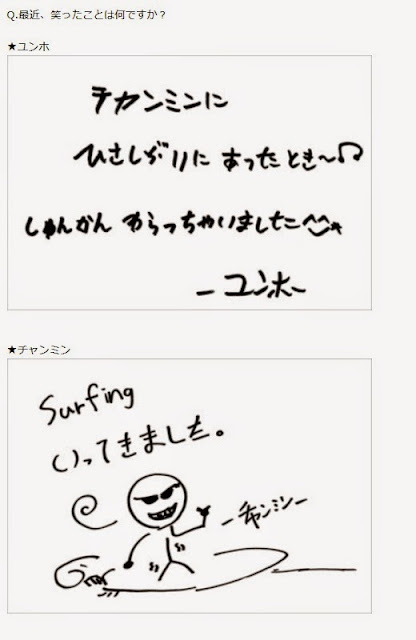 Q.最近、笑ったことは何ですか？
★ユンホ
チカンミンに
ひさしぶりに あったとき～♫
しゅんかん わらっちゃいました^^
－ユンホ－
★チャンミン
Surfing
いってきました。
－チャンミン－